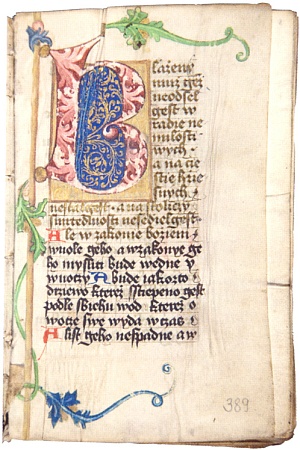 B lazeny
muz gez
neodsel
gest w
radie ne
milosti
wych
a na cie
stie hrie
ssnych
nestal gest · a na stolicy
smrtedlnosti nesedel gest ·
Ale w zakonie boziem
wuole geho a wzakonye ge
ho mysliti bude wedne y
wnoczy A bude iakozto
drziewo kterez sstiepeno gest
podle sbiehu wod kterez o
wotcze swe wyda w czas
A list geho nespadne a w
389